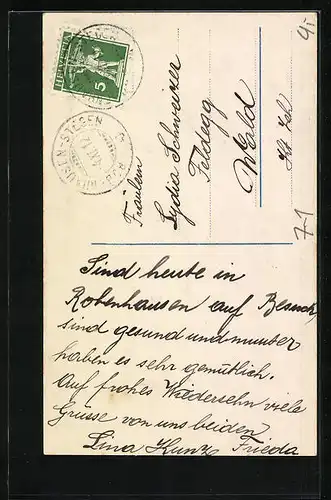 HELVETIA 5
Fräulein
Lydia Schweizer
Feldegg
Wald
Kt. Zch
71
Sind heute in
Robenhausen auf Besuch,
sind gesund und munter
haben es sehr gemütlich.
Auf frohes Wiedersehn viele
Grüsse von uns beiden
Lina Kunz Frieda